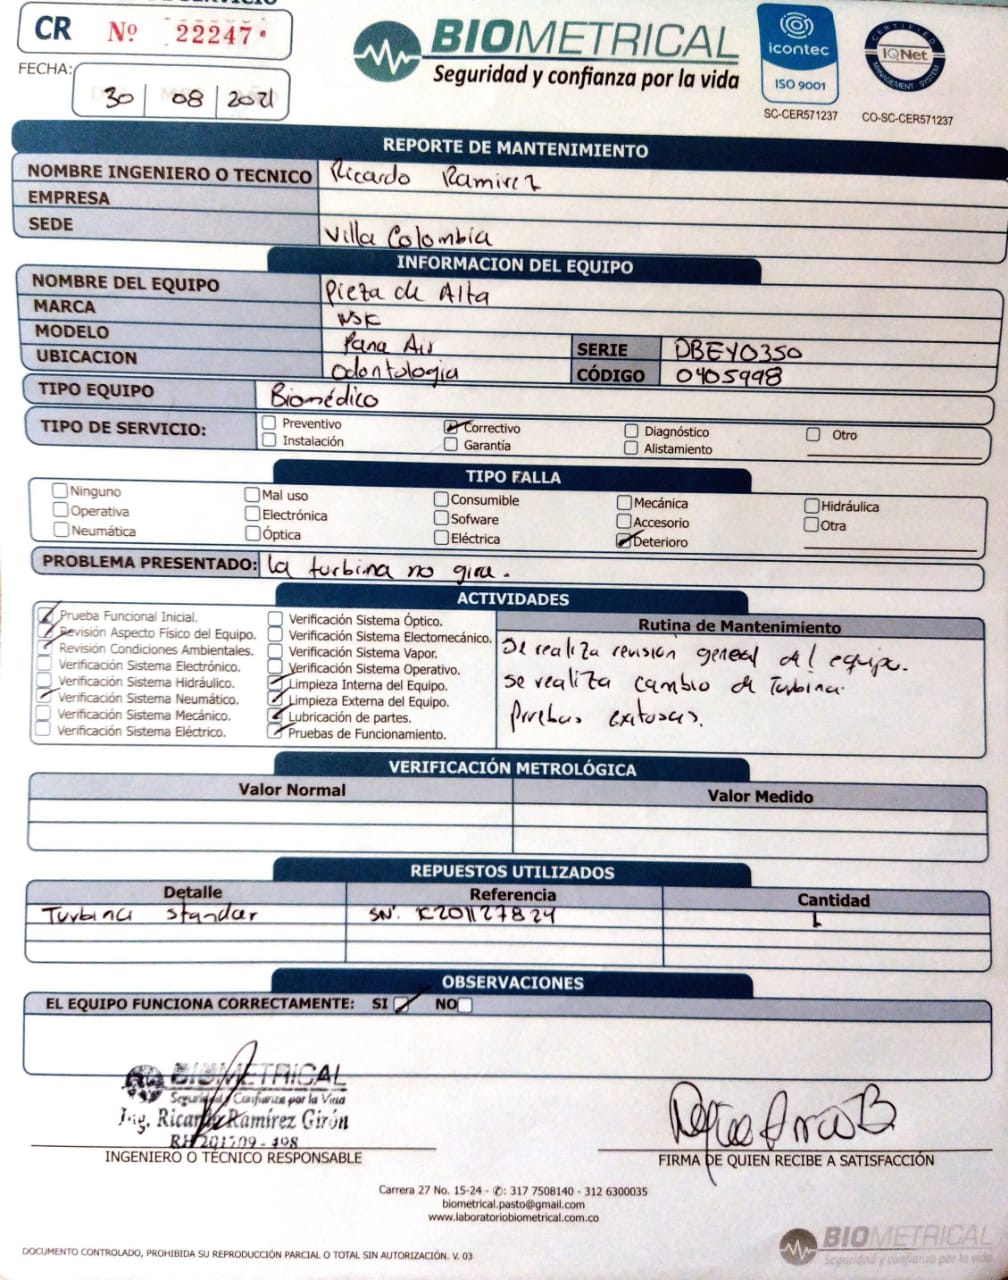 CR Nº 22247
FECHA: 30 08 2021
BIOMETRICAL
Seguridad y confianza por la vida
icontec
ISO 9001
SC-CER571237
CERTIFIED
IQNet
MANAGEMENT SYSTEM
CO-SC-CER571237
REPORTE DE MANTENIMIENTO
NOMBRE INGENIERO O TECNICO Ricardo Ramirez
EMPRESA
SEDE Villa Colombia
INFORMACION DEL EQUIPO
NOMBRE DEL EQUIPO Pieza de Alta
MARCA NSK
MODELO Pana Air SERIE DBEY0350
UBICACION Odontologia CÓDIGO 0405998
TIPO EQUIPO Biomédico
TIPO DE SERVICIO: Preventivo Correctivo Diagnóstico Otro
Instalación Garantía Alistamiento
TIPO FALLA
Ninguno Mal uso Consumible Mecánica Hidráulica
Operativa Electrónica Sofware Accesorio Otra
Neumática Óptica Eléctrica Deterioro
PROBLEMA PRESENTADO: la turbina no gira.
ACTIVIDADES
Prueba Funcional Inicial.
Revisión Aspecto Físico del Equipo.
Revisión Condiciones Ambientales.
Verificación Sistema Electrónico.
Verificación Sistema Hidráulico.
Verificación Sistema Neumático.
Verificación Sistema Mecánico.
Verificación Sistema Eléctrico.
Verificación Sistema Óptico.
Verificación Sistema Electomecánico.
Verificación Sistema Vapor.
Verificación Sistema Operativo.
Limpieza Interna del Equipo.
Limpieza Externa del Equipo.
Lubricación de partes.
Pruebas de Funcionamiento.
Rutina de Mantenimiento
Se realiza revisión general del equipo.
se realiza cambio de Turbina.
Pruebas exitosas.
VERIFICACIÓN METROLÓGICA
Valor Normal Valor Medido
REPUESTOS UTILIZADOS
Detalle Referencia Cantidad
Turbina standar SN: K201127824 1
OBSERVACIONES
EL EQUIPO FUNCIONA CORRECTAMENTE: SI NO
BIOMETRICAL
Seguridad y Confianza por la Vida
Ing. Ricardo Ramírez Girón
RH 201709 - 498
INGENIERO O TÉCNICO RESPONSABLE
FIRMA DE QUIEN RECIBE A SATISFACCIÓN
Carrera 27 No. 15-24 - ✆: 317 7508140 - 312 6300035
biometrical.pasto@gmail.com
www.laboratoriobiometrical.com.co
DOCUMENTO CONTROLADO, PROHIBIDA SU REPRODUCCIÓN PARCIAL O TOTAL SIN AUTORIZACIÓN. V. 03
BIOMETRICAL
Seguridad y confianza por la vida